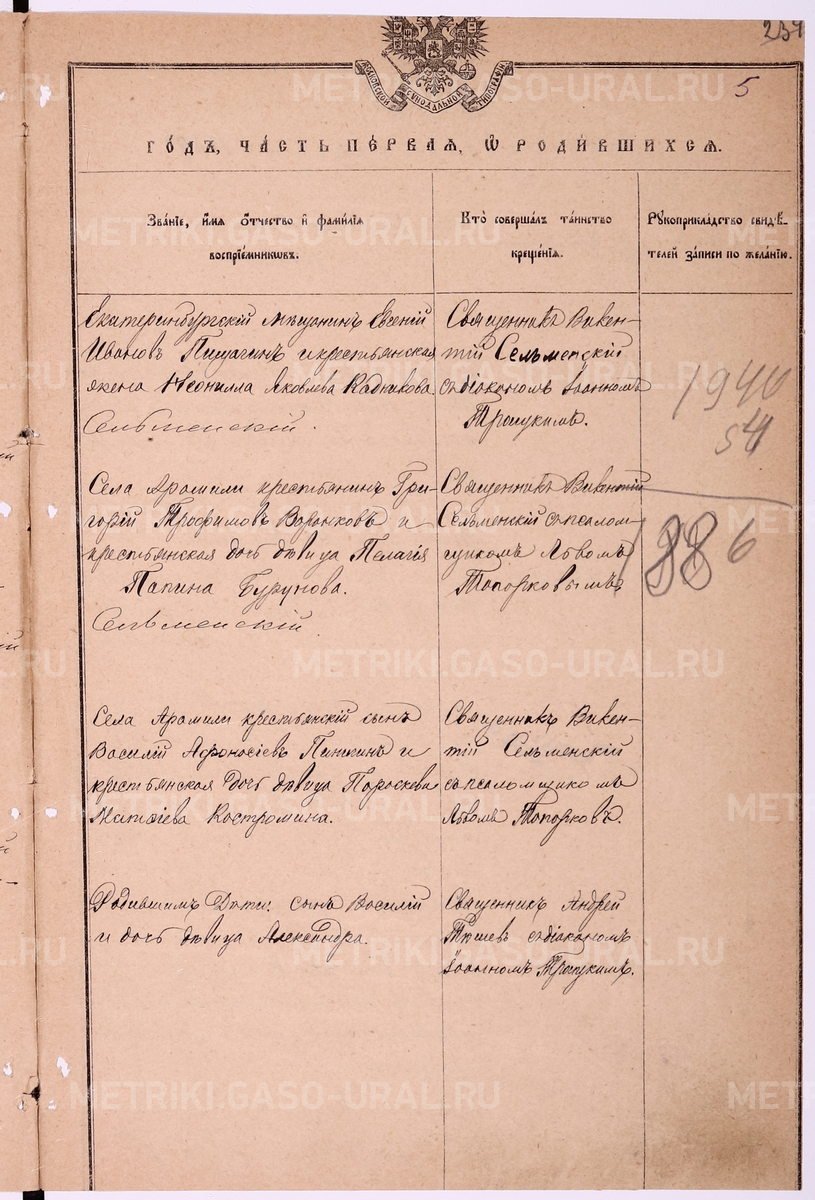 234
5
МОСКОВСКОЙ СѴНОДАЛЬНОЙ ТИПОГРАФІИ
ГО́ДЪ, ЧА́СТЬ ПЕ́РВАЯ, Ѡ҆ РОДИ́ВШИХСѦ.
Зва́нїе, и҆́мя ѻ҆́тчество и҆ фами́лїя
воспрїе́мниковъ.
Кто̀ соверша́лъ та́инство
креще́нїя.
Рꙋкоприкла́дство свидѣ́-
телей за́писи по жела́нїю.
Екатеринбургскій мѣщанинъ Евгеній
Ивановъ Пищагинъ и крестьянская
жена Неонилла Яковлева Кадникова
Сельменскій.
Священникъ Викен-
тій Сельменскій
съ діакономъ Іоанномъ
Троицкимъ.
1940
54
Села Арамили крестьянинъ Гри-
горій Трофимовъ Воронковъ и
крестьянская дочь дѣвица Пелагія
Папина Бурунова.
Сельменскій
Священникъ Викентій
Сельменскій съ псалом-
щикомъ Львомъ
Топорковымъ
886
Села Арамили крестьянскій сынъ
Василій Афонасіевъ Пинжинъ и
крестьянская дочь дѣвица Пароскева
Матѳіева Костромина.
Священникъ Викен-
тій Сельменскій
съ псаломщикомъ
Львомъ Топорковъ.
Родившимъ Дѣти: сынъ Василій
и дочь дѣвица Александра.
Священникъ Андрей
съ діакономъ
Іоанномъ Троицкимъ.
METRIKI.GASO-URAL.RU